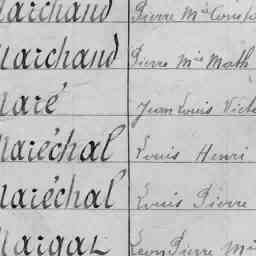 Marchand Pierre M
Marchand Pierre Mie Math
Maré Jean Louis Vict
Maréchal Louis Henri
Maréchal Louis Pierre
Margal Léon Pierre M